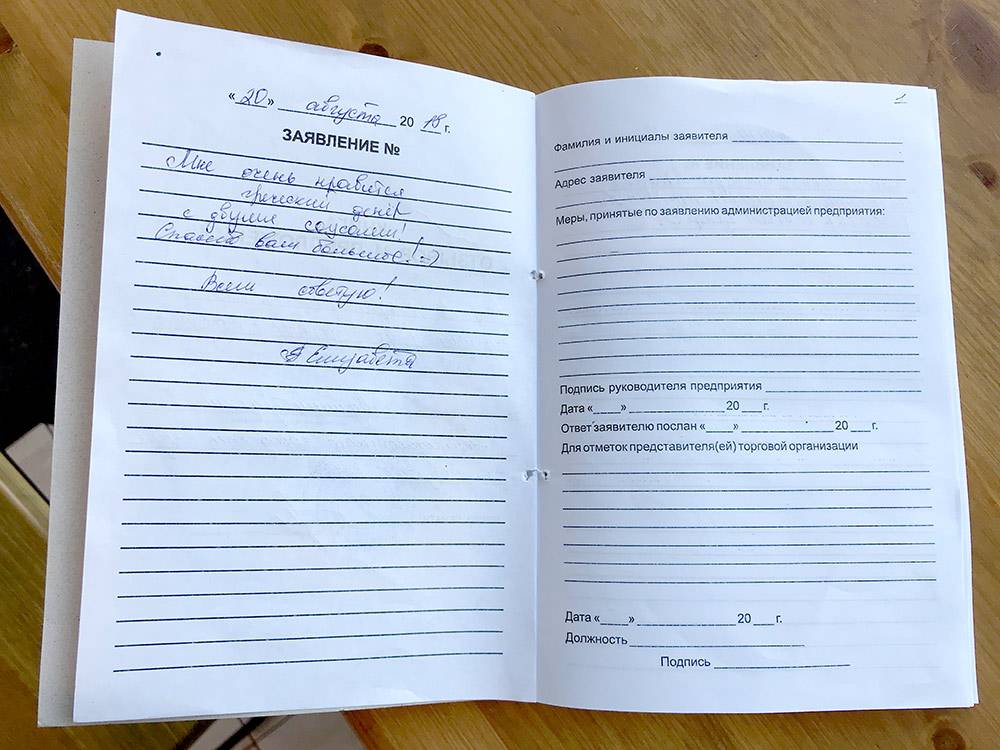 «20» августа 2018 г.
ЗАЯВЛЕНИЕ №
Мне очень нравится
греческий денер
с двумя соусами!
Спасибо вам большое! :-)
Всем советую!
Елизавета
1
Фамилия и инициалы заявителя
Адрес заявителя
Меры, принятые по заявлению администрацией предприятия:
Подпись руководителя предприятия
Дата «____» ____________ 20 ___ г.
Ответ заявителю послан «____» ____________ 20 ___ г.
Для отметок представителя(ей) торговой организации
Дата «____» ____________ 20 ___ г.
Должность
Подпись